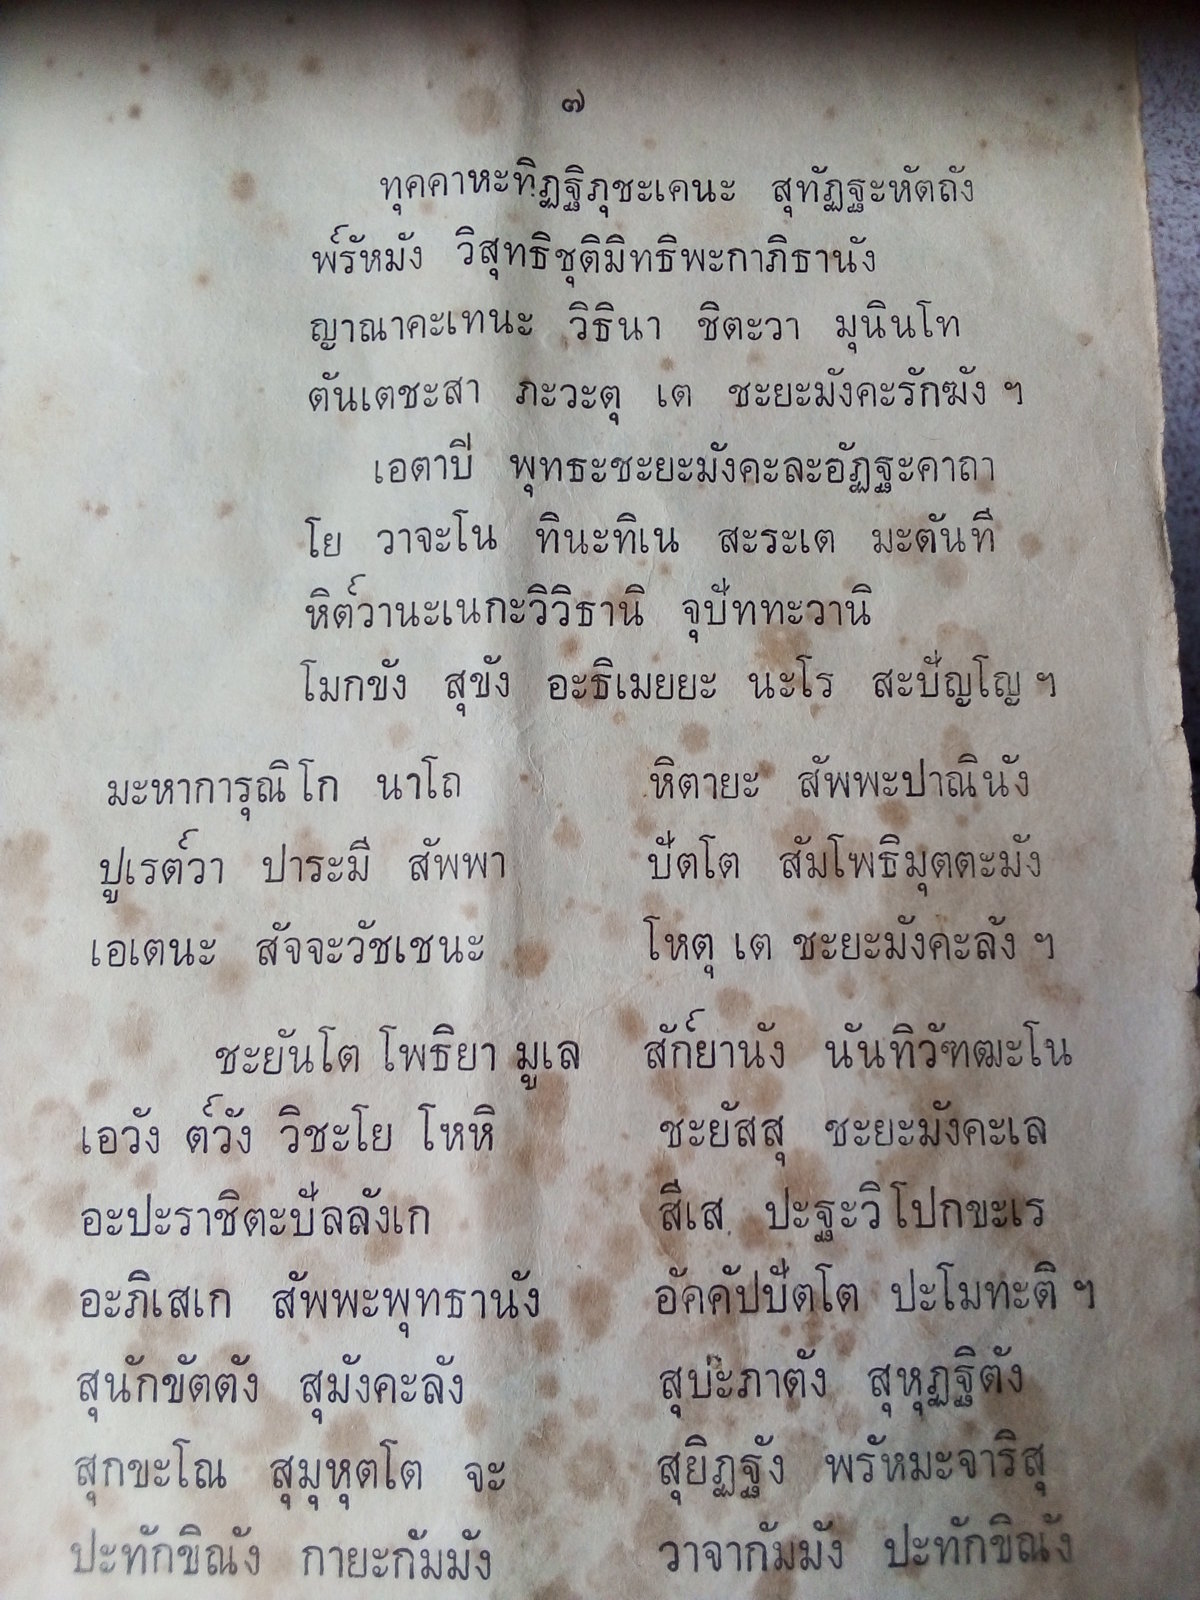 ๗
ทุคคาหะทิฏฐิภุชะเคนะ สุทัฏฐะหัตถัง
พ์รัหมัง วิสุทธิชุติมิทธิพะกาภิธานัง
ญาณาคะเทนะ วิธินา ชิตะวา มุนินโท
ตันเตชะสา ภะวะตุ เต ชะยะมังคะรักฆัง ฯ
เอตาปี พุทธะชะยะมังคะละอัฏฐะคาถา
โย วาจะโน ทินะทิเน สะระเต มะตันที
หิต์วานะเนกะวิวิธานิ จุปัททะวานิ
โมกขัง สุขัง อะธิเมยยะ นะโร สะปัญโญ ฯ
มะหาการุณิโก นาโถ หิตายะ สัพพะปาณินัง
ปูเรต์วา ปาระมี สัพพา ปัตโต สัมโพธิมุตตะมัง
เอเตนะ สัจจะวัชเชนะ โหตุ เต ชะยะมังคะลัง ฯ
ชะยันโต โพธิยา มูเล สัก์ยานัง นันทิวัฑฒะโน
เอวัง ต์วัง วิชะโย โหหิ ชะยัสสุ ชะยะมังคะเล
อะปะราชิตะปัลลังเก สีเส ปะฐะวิโปกขะเร
อะภิเสเก สัพพะพุทธานัง อัคคัปปัตโต ปะโมทะติ ฯ
สุนักขัตตัง สุมังคะลัง สุปะภาตัง สุหุฏฐิตัง
สุกขะโณ สุมุหุตโต จะ สุยิฏฐัง พรัหมะจาริสุ
ปะทักขิณัง กายะกัมมัง วาจากัมมัง ปะทักขิณัง